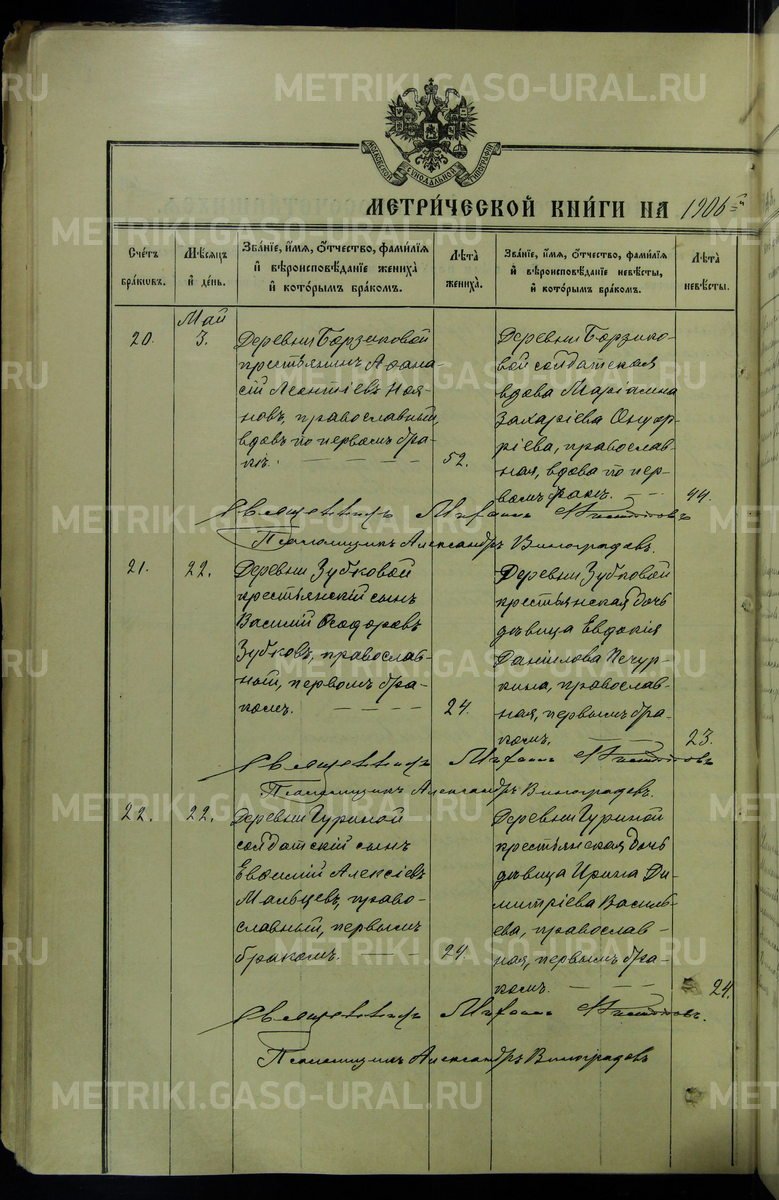 METRIKI.GASO-URAL.RU
МОСКОВСКОЙ СѴНОДАЛЬНОЙ ТИПОГРАФІИ
МЕТРИ́ЧЕСКОЙ КНИ́ГИ НА 1906-й
Счетъ браковъ.
Мѣсяцъ и день.
Званіе, имя, отчество, фамилія
и вѣроисповѣданіе жениха
и которымъ бракомъ.
Лѣта жениха.
Званіе, имя, отчество, фамилія
и вѣроисповѣданіе невѣсты,
и которымъ бракомъ.
Лѣта невѣсты.
20.
Май
3.
Деревни Борзиковой
крестьянинъ Аѳана-
сій Леонтіевъ
православный,
вдовъ по первомъ бра-
кѣ.
52.
Деревни Борзико-
вой солдатская
вдова Маріамна
Захаріева Онуф-
ріева, православ-
ная, вдова по пер-
вомъ бракѣ.
44.
Священникъ
Псаломщикъ Александръ Виноградовъ.
21.
22.
Деревни Зубковой
крестьянскій сынъ
Василій Ѳеодоровъ
Зубковъ, православ-
ный, первымъ бра-
комъ.
24.
Деревни Зубковой
крестьянская дочь
дѣвица Евдокія
Даніилова Печур-
кина, православ-
ная, первымъ бра-
комъ.
23.
Священникъ
Псаломщикъ Александръ Виноградовъ.
22.
22.
Деревни Гуриной
солдатскій сынъ
Евѳимій Алексіевъ
Мальцевъ, право-
славный, первымъ
бракомъ.
24.
Деревни Гуриной
крестьянская дочь
дѣвица Ирина Ди-
митріева Василь-
ева, православ-
ная, первымъ бра-
комъ.
24.
Священникъ
Псаломщикъ Александръ Виноградовъ